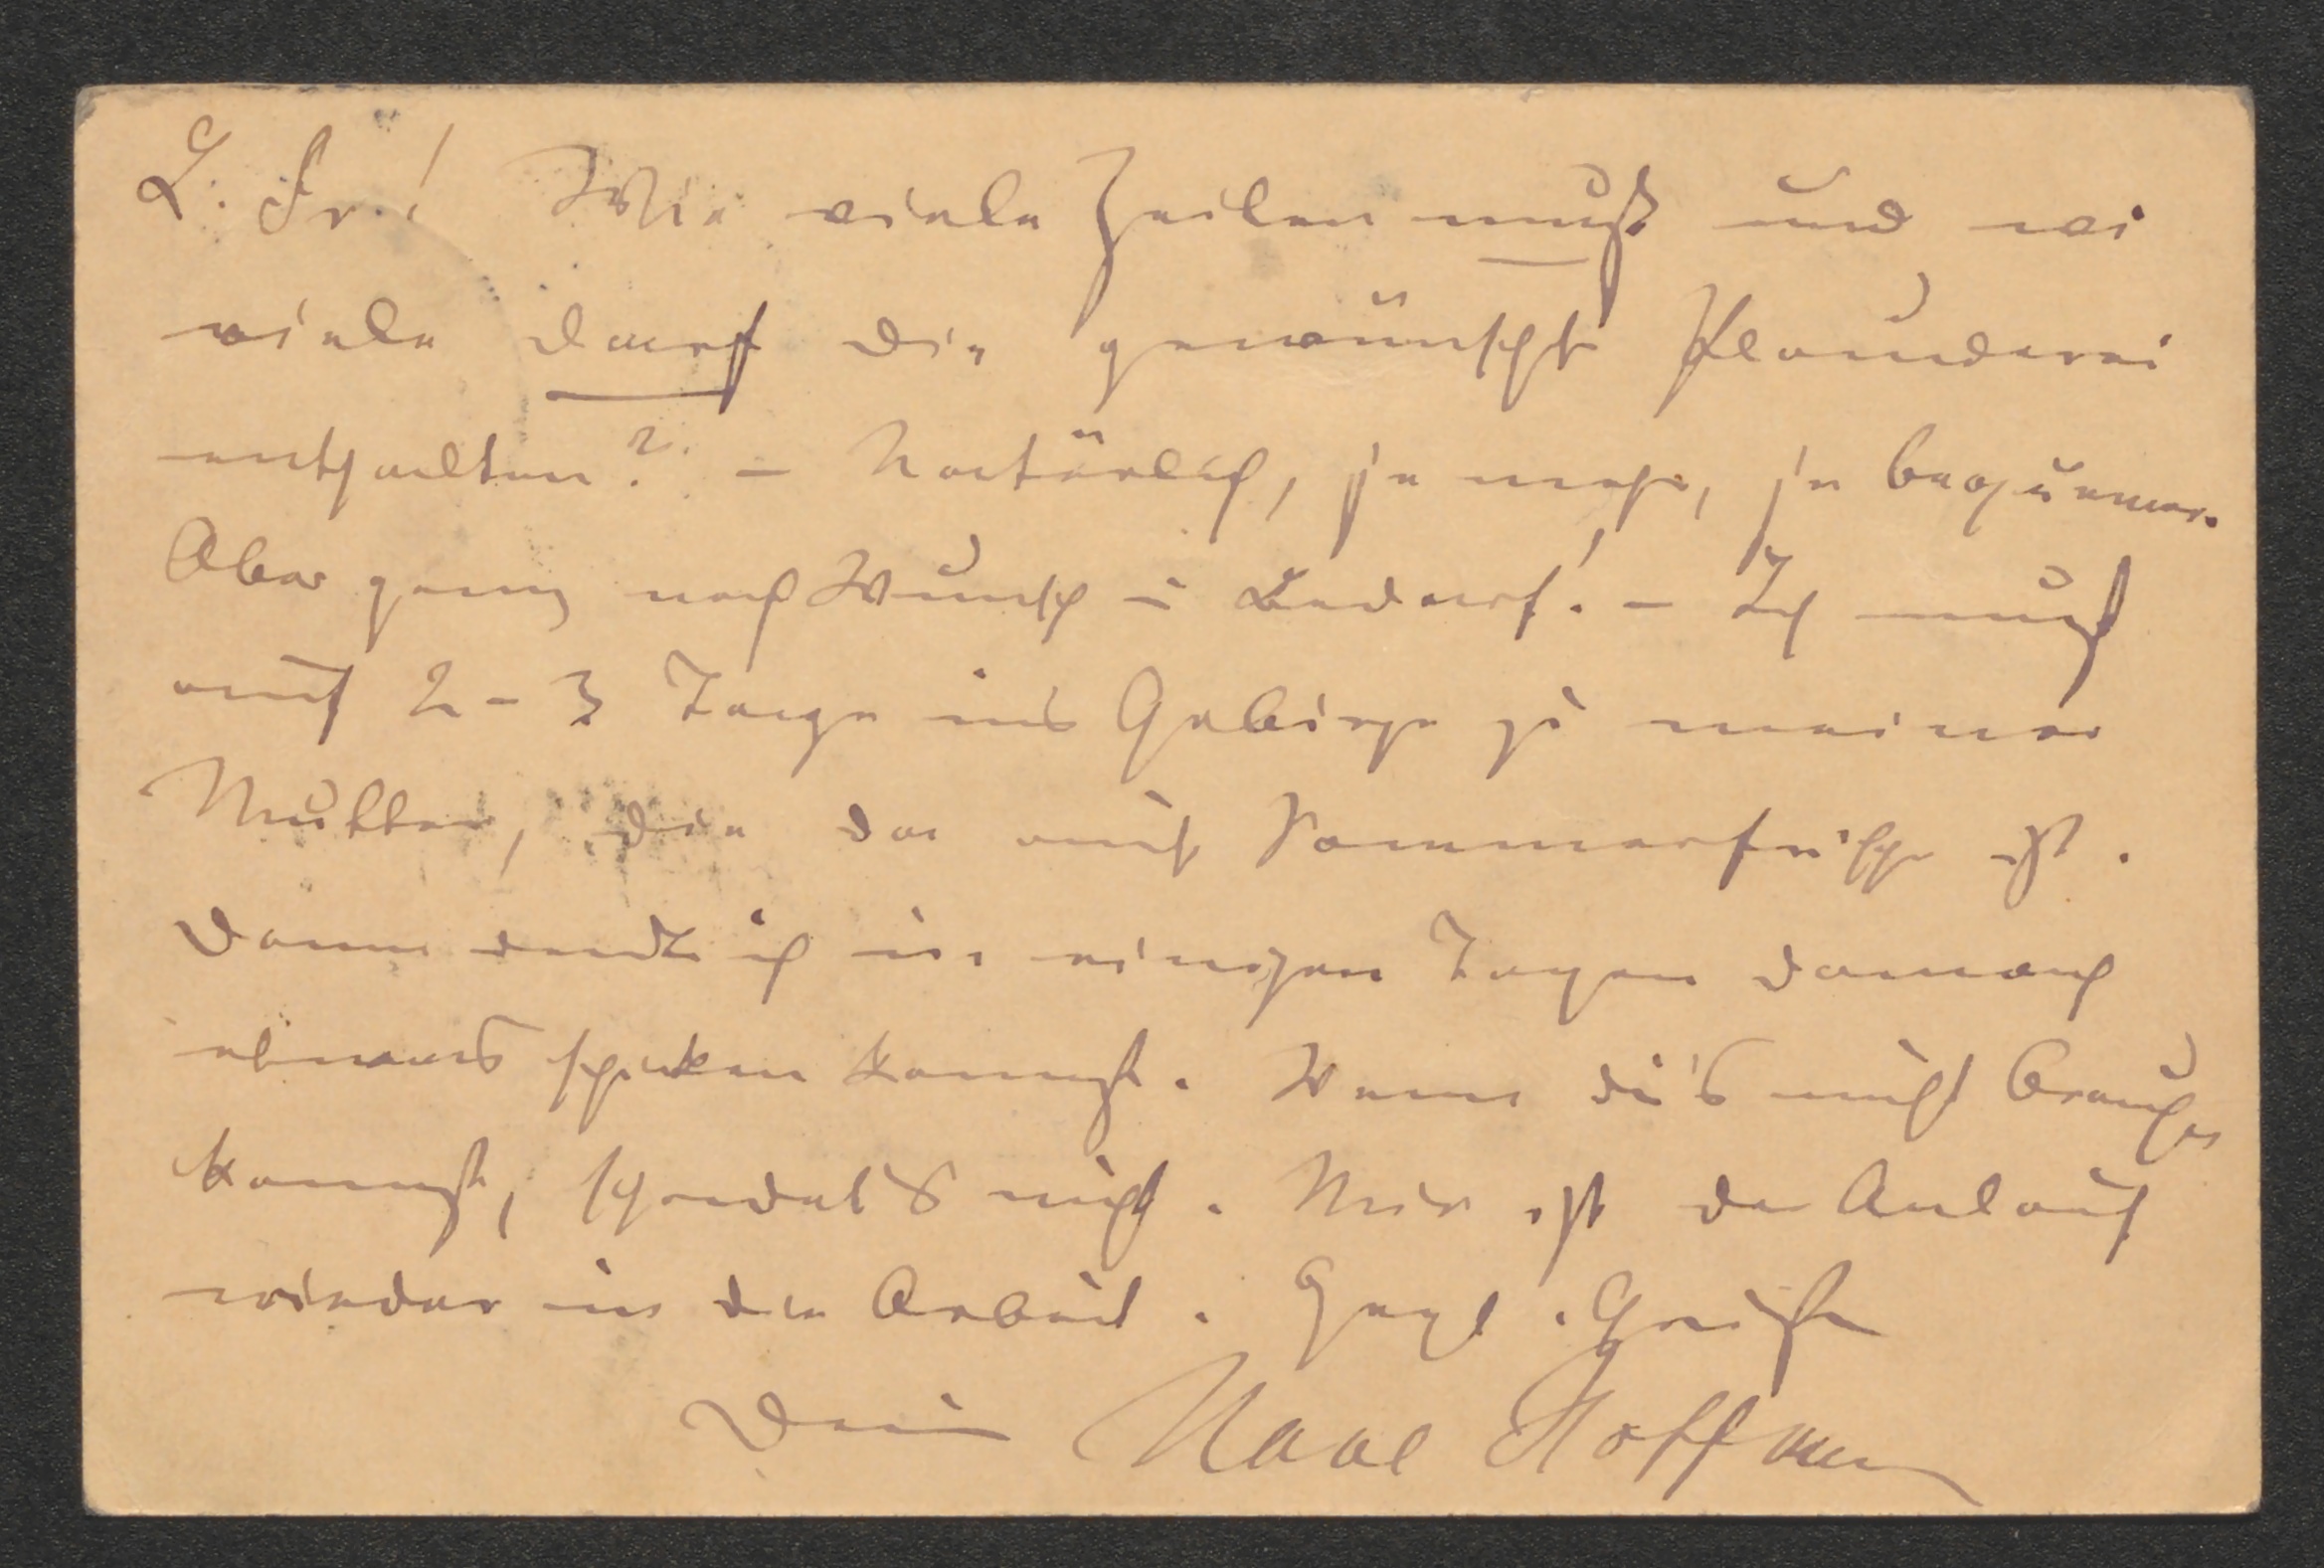 L. Fr.! Wie viele Zeilen muß und wie
viele darf die gewünschte Plauderei
enthalten? – Natürlich, je mehr, je bequemer.
Aber ganz nach Wunsch u Bedarf! – Ich muß
auf 2–3 Tage ins Gebirge zu meiner
Mutter, die da auf Sommerfrische ist.
Dann denk ich in einigen Tagen darnach
etwas schicken kannst. Wenn du's nicht brauchen
kannst, schadet's nicht. Mir ist der Anlauf
wieder in die Arbeit. Herzl. Grüße
Dein Hoffmann